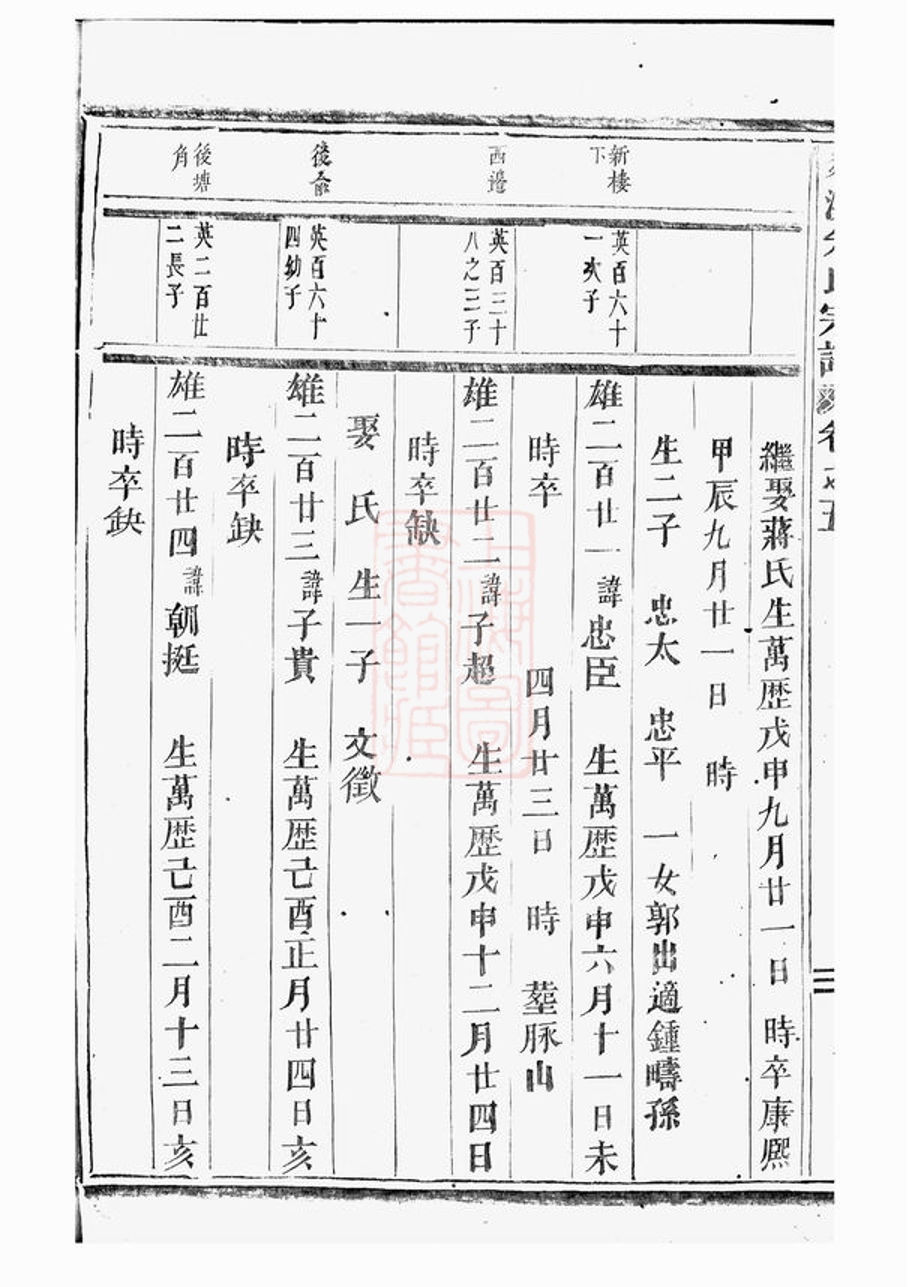 宗譜
卷之五
三
繼娶蔣氏生萬歷戊申九月廿一日 時卒康熙
甲辰九月廿一日 時
生二子 忠太 忠平 一女郭出適鍾疇孫
新樓下
英百六十一次子
雄二百廿一諱忠臣 生萬歷戊申六月十一日未
時卒 四月廿三日 時 塟豚山
西邉
英百三十八之三子
雄二百廿二諱子超 生萬歷戊申十二月廿四日
時卒缺
娶 氏 生一子 文徵
後俞
英百六十四幼子
雄二百廿三諱子貴 生萬歷己酉正月廿四日亥
時卒缺
後塘角
英二百廿二長子
雄二百廿四諱朝挺 生萬歷己酉二月十三日亥
時卒缺
上海圖書館藏